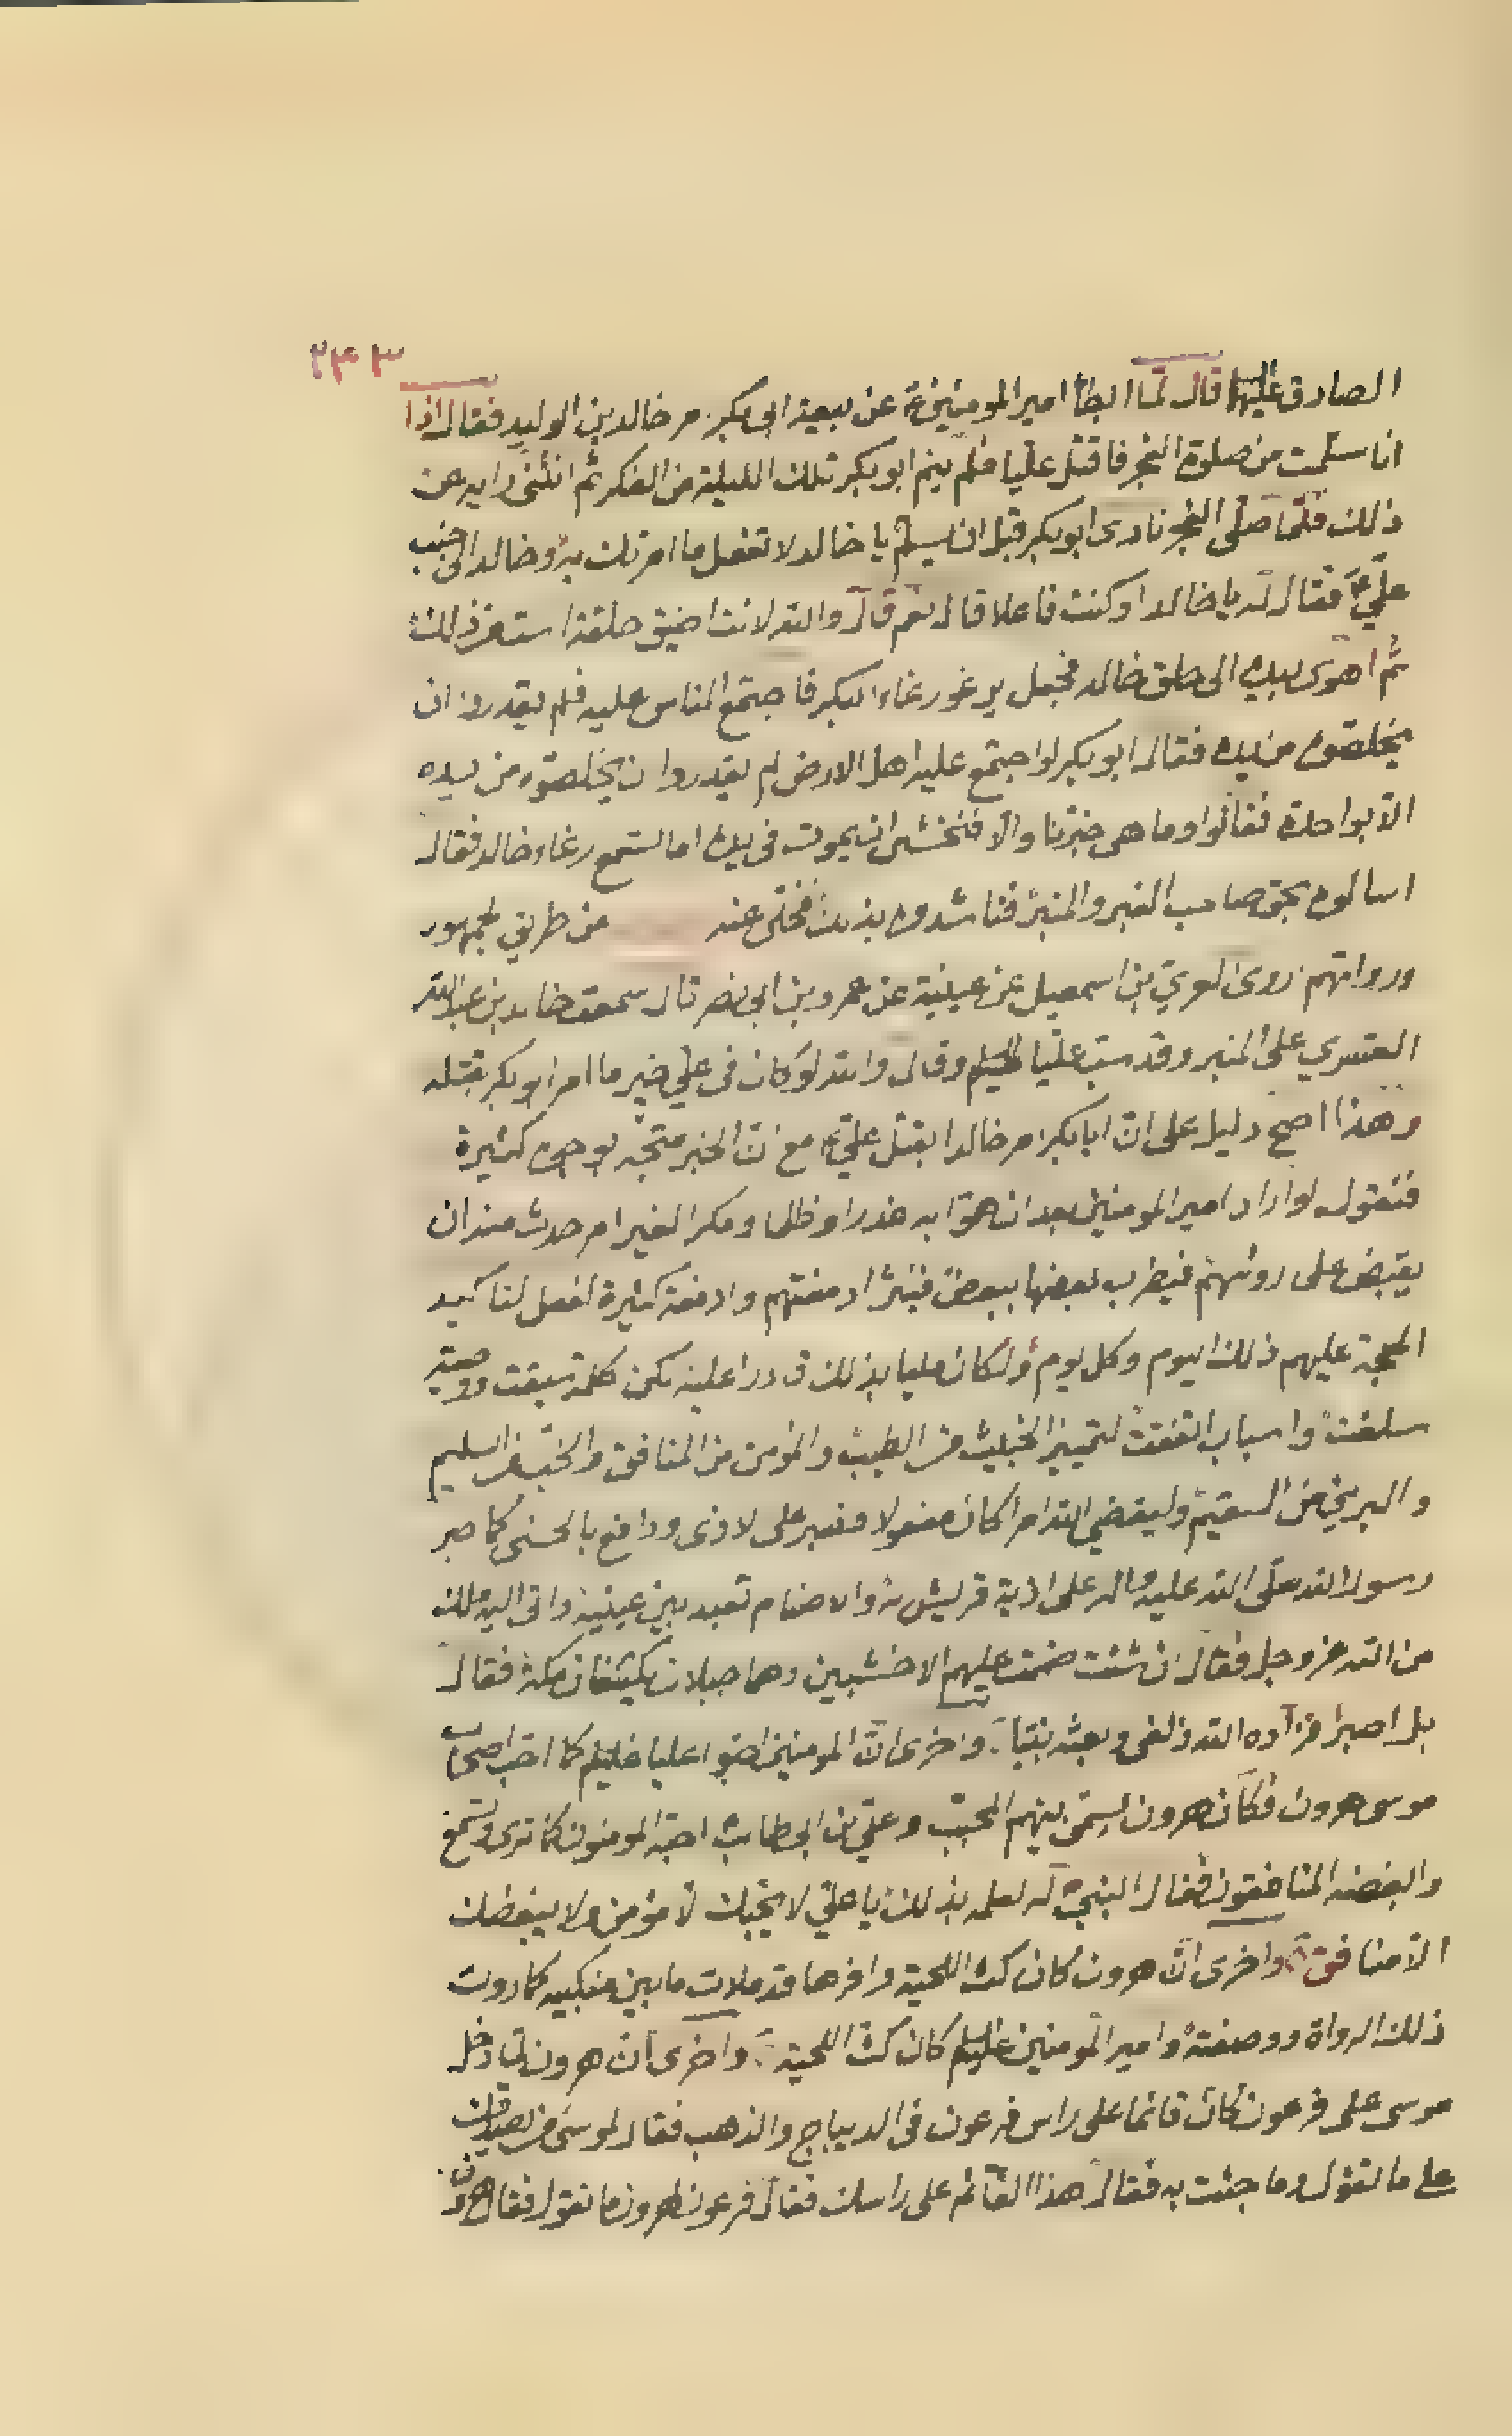 ۲۴۳
الصادق عليهما قال لما ابطأ امير المومنين ع عن بيعة ابى بكر امر خالد بن الوليد فقال اذا
انا سلمت من صلوة الفجر فاقتل عليا فلم ينم ابو بكر تلك الليلة من الفكر ثم انثنى رايه عن
ذلك فلما صلى الفجر نادى ابو بكر قبل ان يسلم يا خالد لا تفعل ما امرتك به وخالد الى جنب
علي ع فقال له يا خالد او كنت فاعلا قال نعم قال والله لانت اضيق حلقة است من ذلك
ثم اهوى بيده الى حلق خالد فجعل يرغو رغاء البكر فاجتمع الناس عليه فلم يقدروا ان
يخلصوه من يده فقال ابو بكر لو اجتمع عليه اهل الارض لم يقدروا ان يخلصوه من يده
الا بواحدة فقالوا وما هى خبرنا والا فنخشى ان يموت فى يده اما تسمع رغاء خالد فقال
اسالوه بحق صاحب القبر والمنبر فناشدوه بذلك فخلى عنه من طريق الجمهور
ورواتهم روى بن اسمعيل عن عيينة عن عمرو بن ابى نصر قال سمعت خالد بن عبد الله
القسري على المنبر وقد سب عليا عليه السلم وقال والله لو كان فى علي خير ما امر ابو بكر بقتله
وهذا اصح دليل على ان ابا بكر امر خالدا بقتل علي ع مع ان الخبر متجه بوجوه كثيرة
فنقول لو اراد امير المومنين بعد ان هموا به غدرا وظلما ومكرا لغير امر حدث منه ان
يقبض على رؤسهم فيضرب بعضها ببعض فينثر ادمغتهم وادمغة كثيرة لفعل لتاكيد
الحجة عليهم ذلك اليوم وكل يوم ولكان مليا بذلك قادرا عليه لكن كلمة سبقت ووصية
سلفت واسباب اتفقت لتمييز الخبيث من الطيب والمومن من المنافق والخب من السليم
والبرئ من السقيم وليقضي الله امرا كان مفعولا فصبر على الاذى ودافع بالحسنى كما صبر
رسول الله صلى الله عليه واله على اذية قريش له والاصنام تعبد بين عينيه واتى اليه ملك
من الله عز وجل فقال ان شئت ضممت عليهم الاخشبين وهما جبلان يكتنفان مكة فقال
بل اصبر فزاده الله زلفى وبعثه نبيا واخرى ان المومنين احبوا عليا عليه السلم كما احب اصحاب
موسى هرون فكان هرون يسمى بينهم المحبب وعلي بن ابى طالب احبه المومنون كما ترى وتسمع
وابغضه المنافقون فقال النبي ص له لعلمه بذلك يا علي لا يحبك الا مؤمن ولا يبغضك
الا منافق واخرى ان هرون كان كث اللحية وافرها قد ملات ما بين منكبيه كما روت
ذلك الرواة ووصفته وامير المومنين عليه السلم كان كث اللحية واخرى ان هرون لما دخل
موسى على فرعون كان قائما على راس فرعون فى الديباج والذهب فقال لموسى من يصدقك
على ما تقول وما جئت به فقال هذا القائم على راسك فقال فرعون لهرون ما تقول فقال هرون